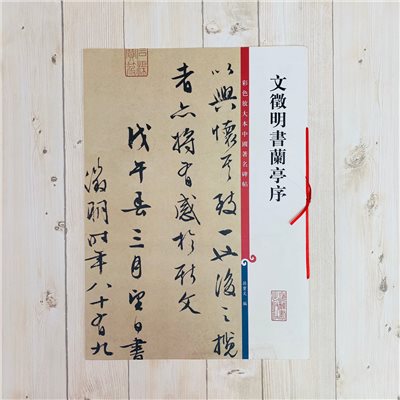 文徵明書蘭亭序
彩色放大本中國著名碑帖
孫寶文 編
以興懷其致一也後之攬
者亦將有感於斯文
戊午春三月望日書
徵明時年八十有九